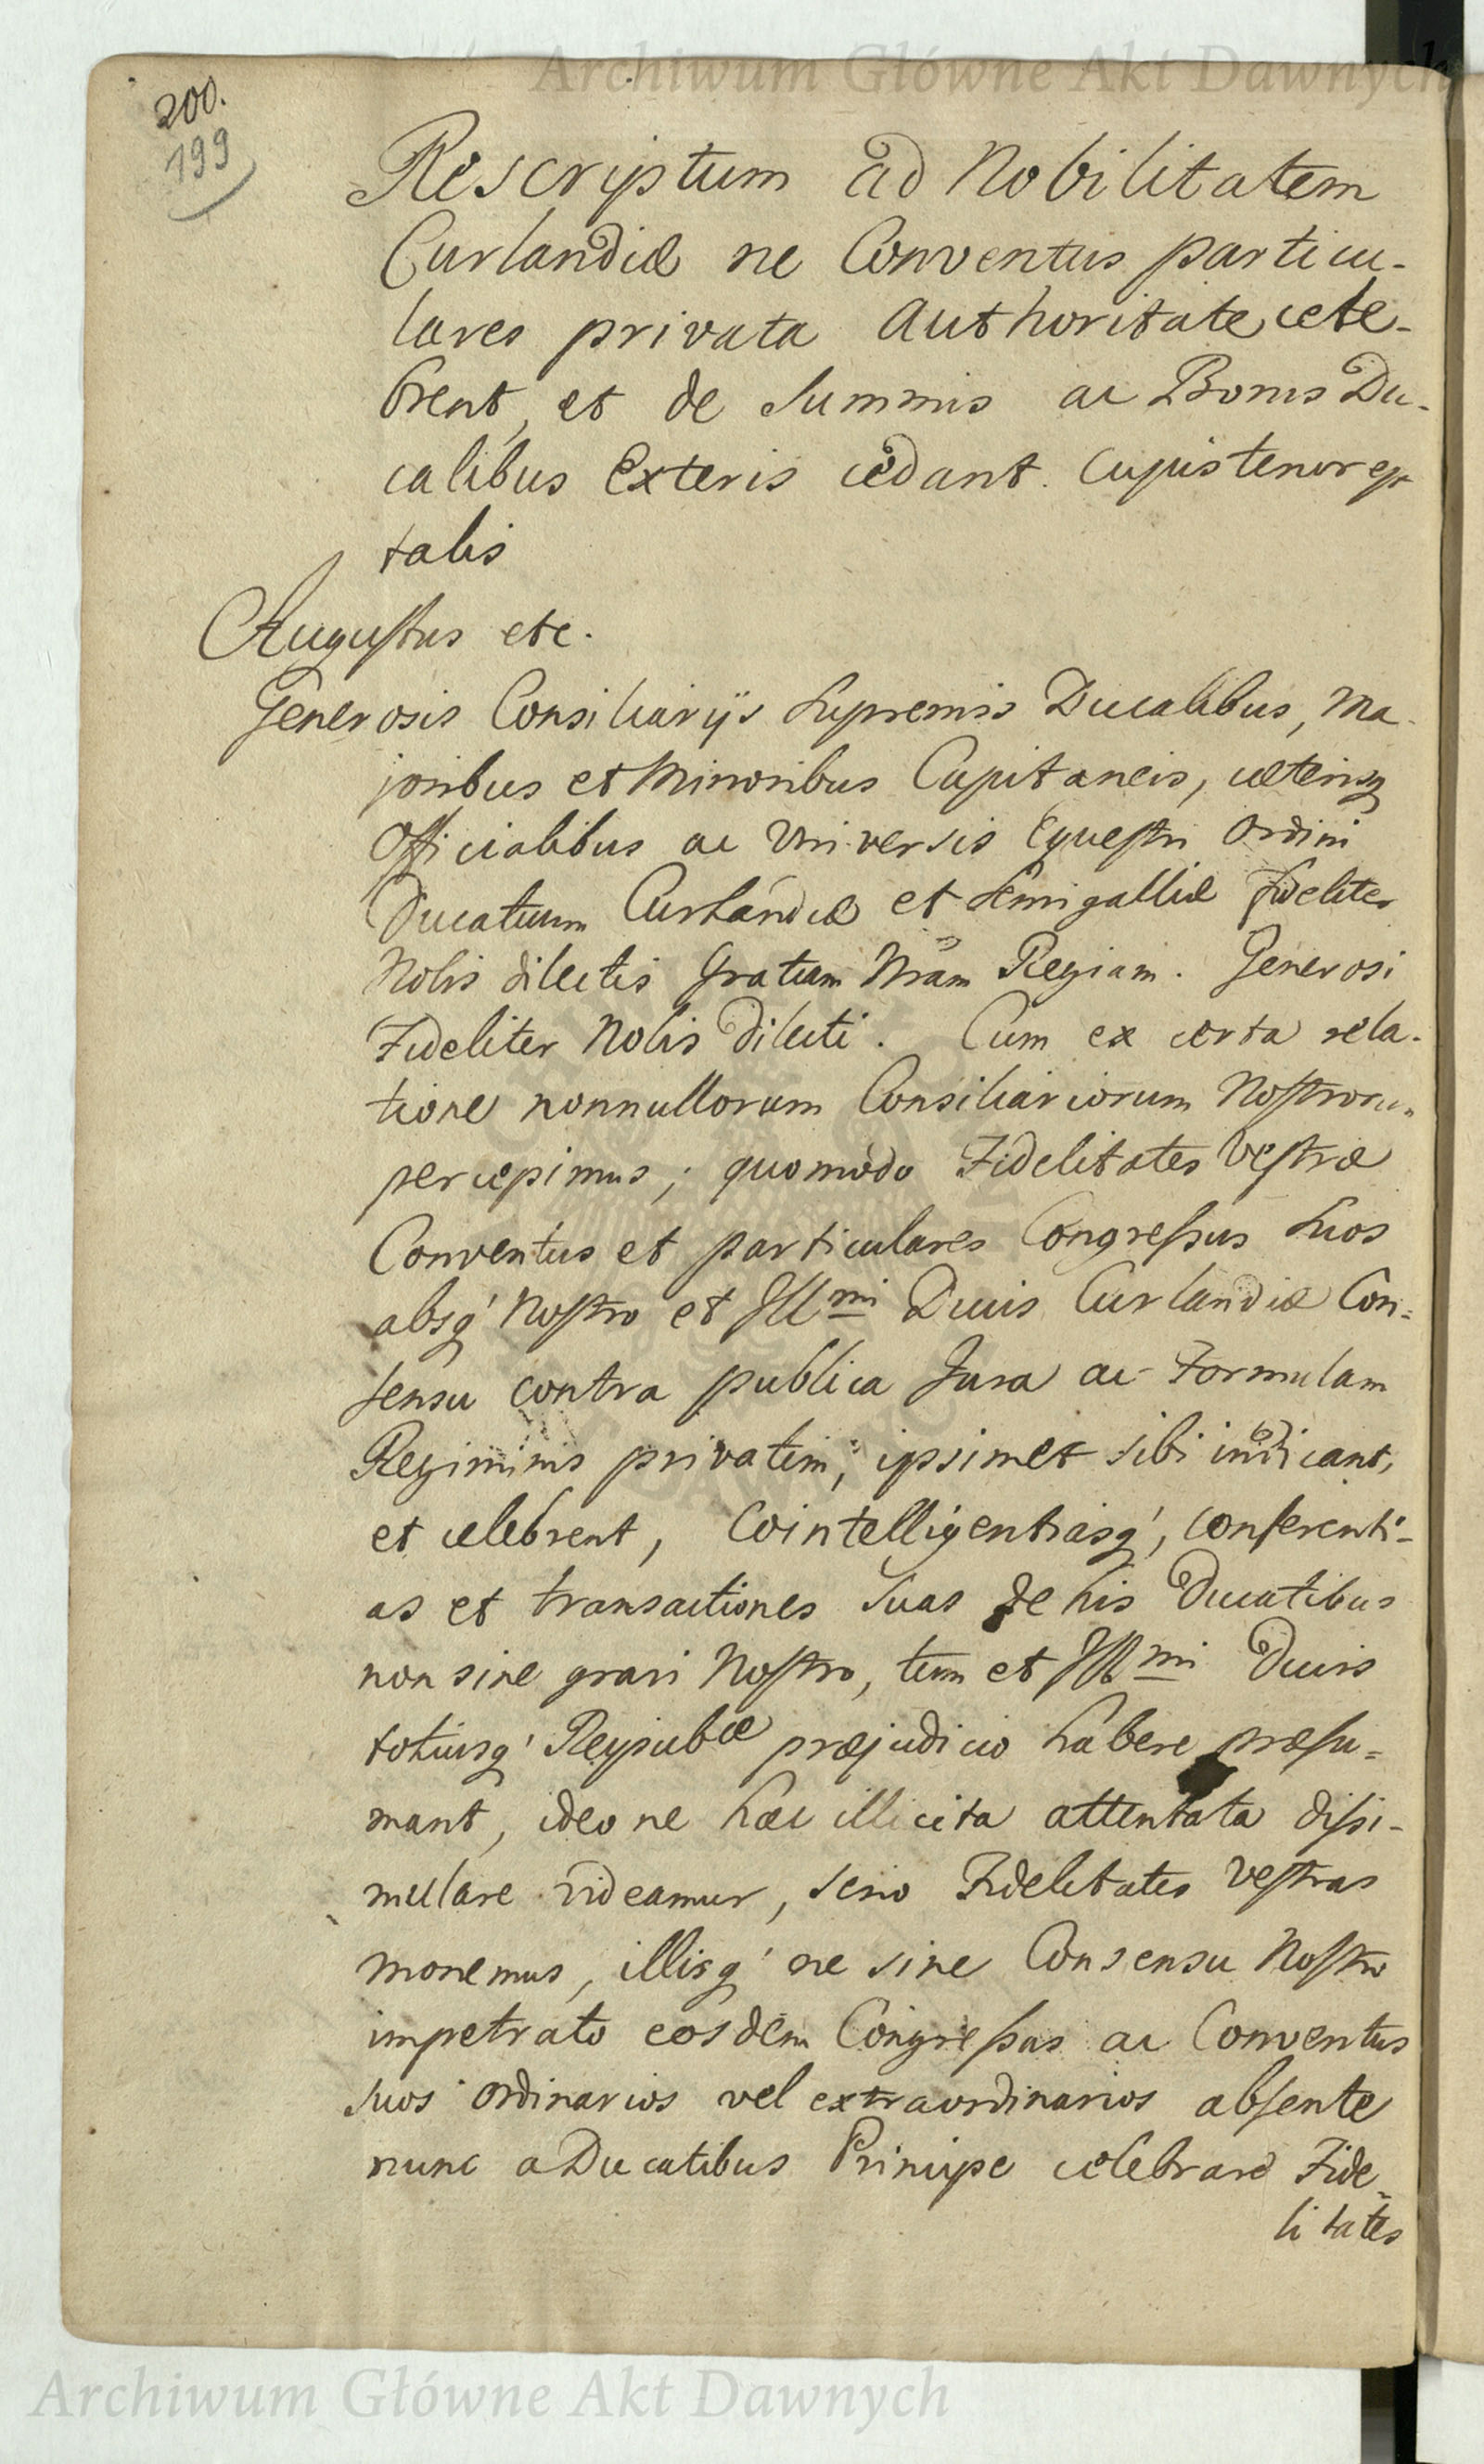 Archiwum Główne Akt Dawnych
200.
199
Rescriptum ad Nobilitatem
Curlandiæ ne Conventus particu-
lares privata Authoritate cele-
brent, et de summis ac Bonis Du-
calibus Exteris cedant. Cujus tenor est
talis
Augustus etc.
Generosis Consiliarijs Supremis Ducalibus, Ma-
joribus et Minoribus Capitaneis, cæterisq
Officialibus ac Universis Equestri Ordini
Ducatuum Curlandiæ et Semigalliæ Fideliter
Nobis dilectis Gratiam Nram Regiam. Generosi
Fideliter Nobis Dilecti. Cum ex certa rela-
tione nonnullorum Consiliariorum Nostrorum
percepimus; quomodo Fidelitates Vestræ
Conventus et particulares Congressus Suos
absq' Nostro et Illmi Ducis Curlandiæ Con=
sensu contra publica Jura ac Formulam
Regiminis privatim, ipsimet sibi indicant,
et celebrent, Cointelligentiasq', conferenti-
as et transactiones suas de his Ducatibus
non sine gravi Nostro, tum et Illmi Ducis
totiusq' Reypubcæ præjudicio habere præsu=
mant, ideo ne hæc illicita attentata dissi-
mulare videamur, serio Fidelitates Vestras
monemus, illisq' ne sine Consensu Nostro
impetrato eosdem Congressus ac Conventus
suos ordinarios vel extraordinarios absente
nunc a Ducatibus Principe celebrare Fide=
litates
Archiwum Główne Akt Dawnych